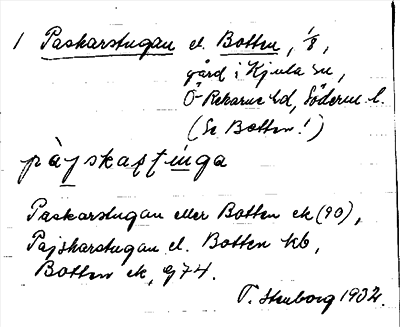 1 Paskarstugan el. Botten, 1/8,
gård i Kjula sn,
Ö Rekarne hd, Söderm. l.
(Se Botten!)
Paskarstugan eller Botten ek (90),
Pajskarstugan el. Botten kb,
Botten ek, g74.
T. Stenborg 1932.